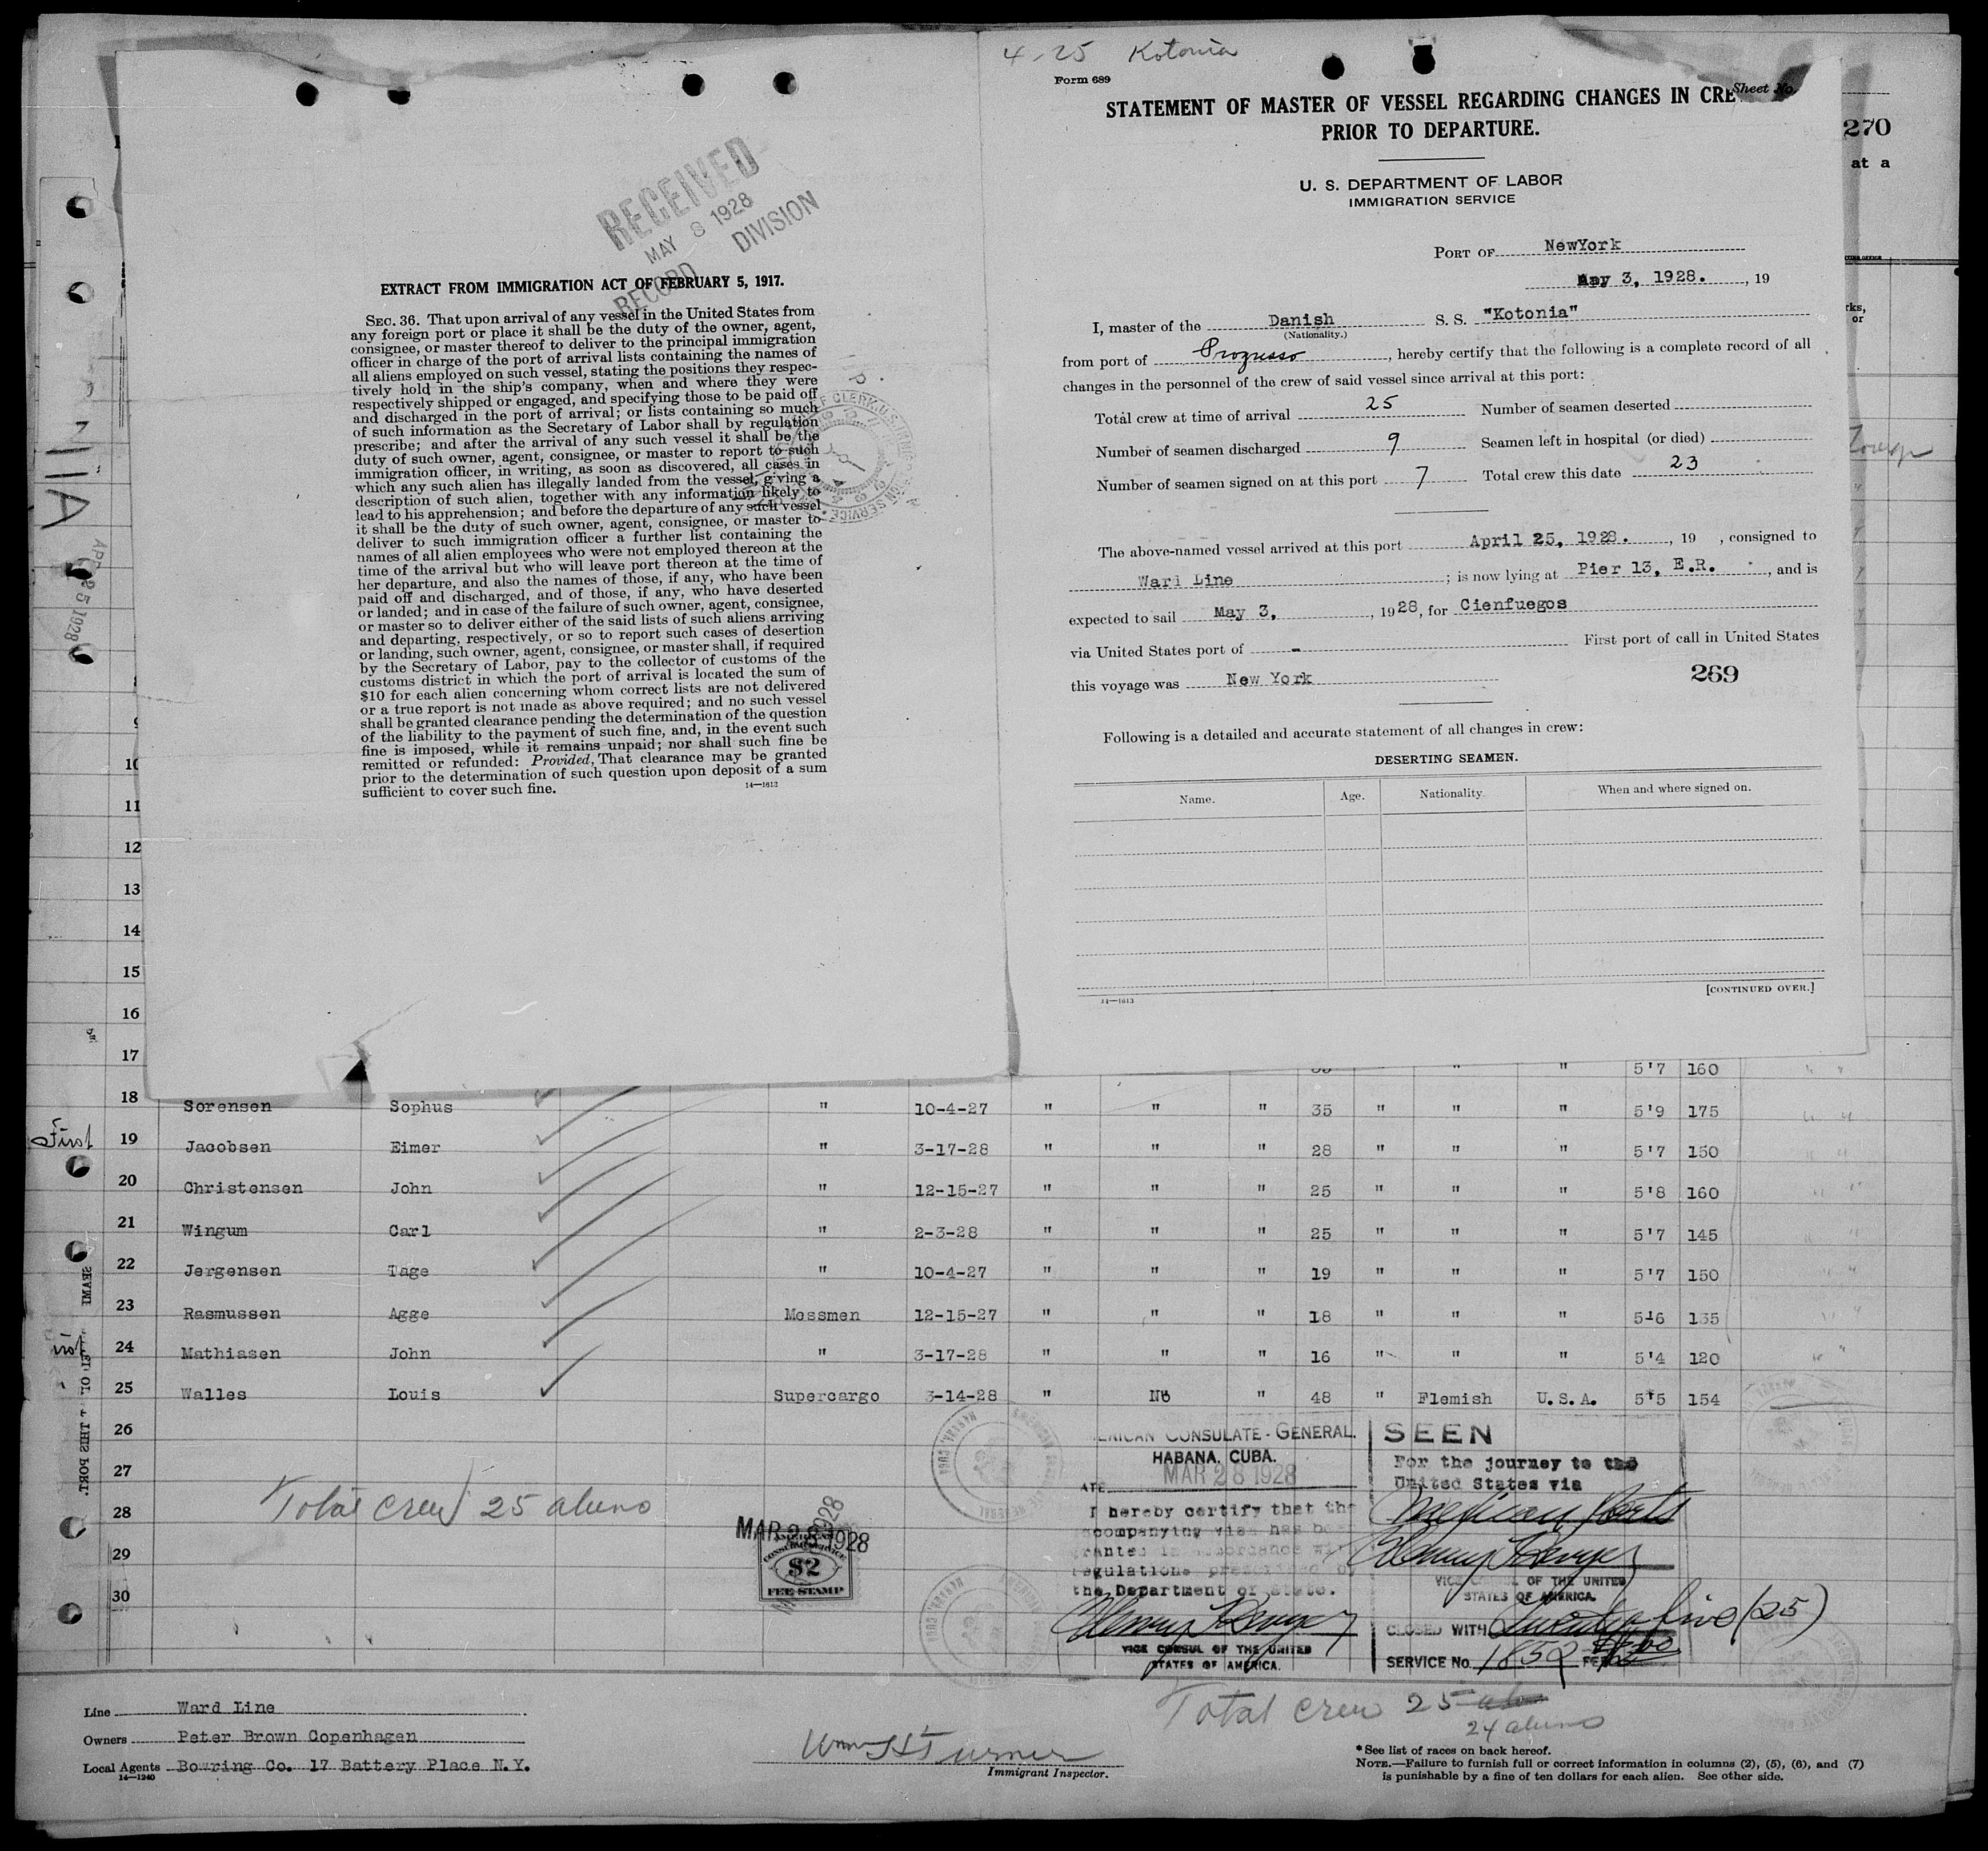 4-25 Kotonia
Form 689
Sheet No.
STATEMENT OF MASTER OF VESSEL REGARDING CHANGES IN CRE
PRIOR TO DEPARTURE.
270
at a
U. S. DEPARTMENT OF LABOR
IMMIGRATION SERVICE
PORT OF NewYork
May 3, 1928. , 19
I, master of the Danish S. S. "Kotonia"
(Nationality.)
from port of Progresso , hereby certify that the following is a complete record of all
changes in the personnel of the crew of said vessel since arrival at this port:
Total crew at time of arrival 25 Number of seamen deserted
Number of seamen discharged 9 Seamen left in hospital (or died)
Number of seamen signed on at this port 7 Total crew this date 23
The above-named vessel arrived at this port April 25, 1928. , 19 , consigned to
Ward Line ; is now lying at Pier 13, E.R. , and is
expected to sail May 3, , 1928, for Cienfuegos
via United States port of - First port of call in United States
this voyage was New York
269
Following is a detailed and accurate statement of all changes in crew:
DESERTING SEAMEN.
Name. Age. Nationality. When and where signed on.
14—1613
[CONTINUED OVER.]
RECEIVED
MAY 8 1928
RECORD DIVISION
EXTRACT FROM IMMIGRATION ACT OF FEBRUARY 5, 1917.
SEC. 36. That upon arrival of any vessel in the United States from
any foreign port or place it shall be the duty of the owner, agent,
consignee, or master thereof to deliver to the principal immigration
officer in charge of the port of arrival lists containing the names of
all aliens employed on such vessel, stating the positions they respec-
tively hold in the ship's company, when and where they were
respectively shipped or engaged, and specifying those to be paid off
and discharged in the port of arrival; or lists containing so much
of such information as the Secretary of Labor shall by regulation
prescribe; and after the arrival of any such vessel it shall be the
duty of such owner, agent, consignee, or master to report to such
immigration officer, in writing, as soon as discovered, all cases in
which any such alien has illegally landed from the vessel, giving a
description of such alien, together with any information likely to
lead to his apprehension; and before the departure of any such vessel
it shall be the duty of such owner, agent, consignee, or master to
deliver to such immigration officer a further list containing the
names of all alien employees who were not employed thereon at the
time of the arrival but who will leave port thereon at the time of
her departure, and also the names of those, if any, who have been
paid off and discharged, and of those, if any, who have deserted
or landed; and in case of the failure of such owner, agent, consignee,
or master so to deliver either of the said lists of such aliens arriving
and departing, respectively, or so to report such cases of desertion
or landing, such owner, agent, consignee, or master shall, if required
by the Secretary of Labor, pay to the collector of customs of the
customs district in which the port of arrival is located the sum of
$10 for each alien concerning whom correct lists are not delivered
or a true report is not made as above required; and no such vessel
shall be granted clearance pending the determination of the question
of the liability to the payment of such fine, and, in the event such
fine is imposed, while it remains unpaid; nor shall such fine be
remitted or refunded: Provided, That clearance may be granted
prior to the determination of such question upon deposit of a sum
sufficient to cover such fine.
14—1613
APR 25 1928
10
11
12
13
14
15
16
17 " " 5'7 160
18 Sorensen Sophus " 10-4-27 " " " 35 " " " 5'9 175
First
19 Jacobsen Eimer " 3-17-28 " " " 28 " " " 5'7 150
20 Christensen John " 12-15-27 " " " 25 " " " 5'8 160
21 Wingum Carl " 2-3-28 " " " 25 " " " 5'7 145
22 Jergensen Tage " 10-4-27 " " " 19 " " " 5'7 150
23 Rasmussen Agge Messmen 12-15-27 " " " 18 " " " 5'6 135
24 Mathiasen John " 3-17-28 " " " 16 " " " 5'4 120
25 Walles Louis Supercargo 3-14-28 " No " 48 " Flemish U.S.A. 5'5 154
26
27
28
29
30
Total crew 25 aliens
MAR 28 1928
AMERICAN
CONSULAR SERVICE
$2
FEE STAMP
ERICAN CONSULATE-GENERAL.
HABANA, CUBA.
MAR 28 1928
I hereby certify that the
accompanying visa has been
granted in accordance with
regulations prescribed by
the Department of State.
VICE CONSUL OF THE UNITED
STATES OF AMERICA.
SEEN
For the journey to the
United States via
Mexican Ports
VICE CONSUL OF THE UNITED
STATES OF AMERICA.
CLOSED WITH Twenty five (25)
SERVICE No. 1852 FEE
Total crew 25
24 aliens
Line Ward Line
Owners Peter Brown Copenhagen
Local Agents Bowring Co. 17 Battery Place N.Y.
14—1240
Wm H Turner
Immigrant Inspector.
*See list of races on back hereof.
NOTE.—Failure to furnish full or correct information in columns (2), (5), (6), and (7)
is punishable by a fine of ten dollars for each alien. See other side.